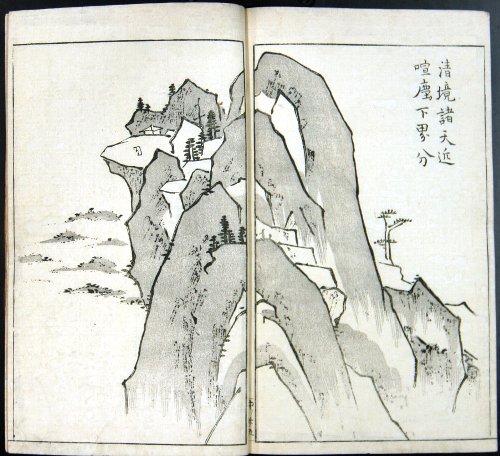 清境諸天近
喧塵下界分